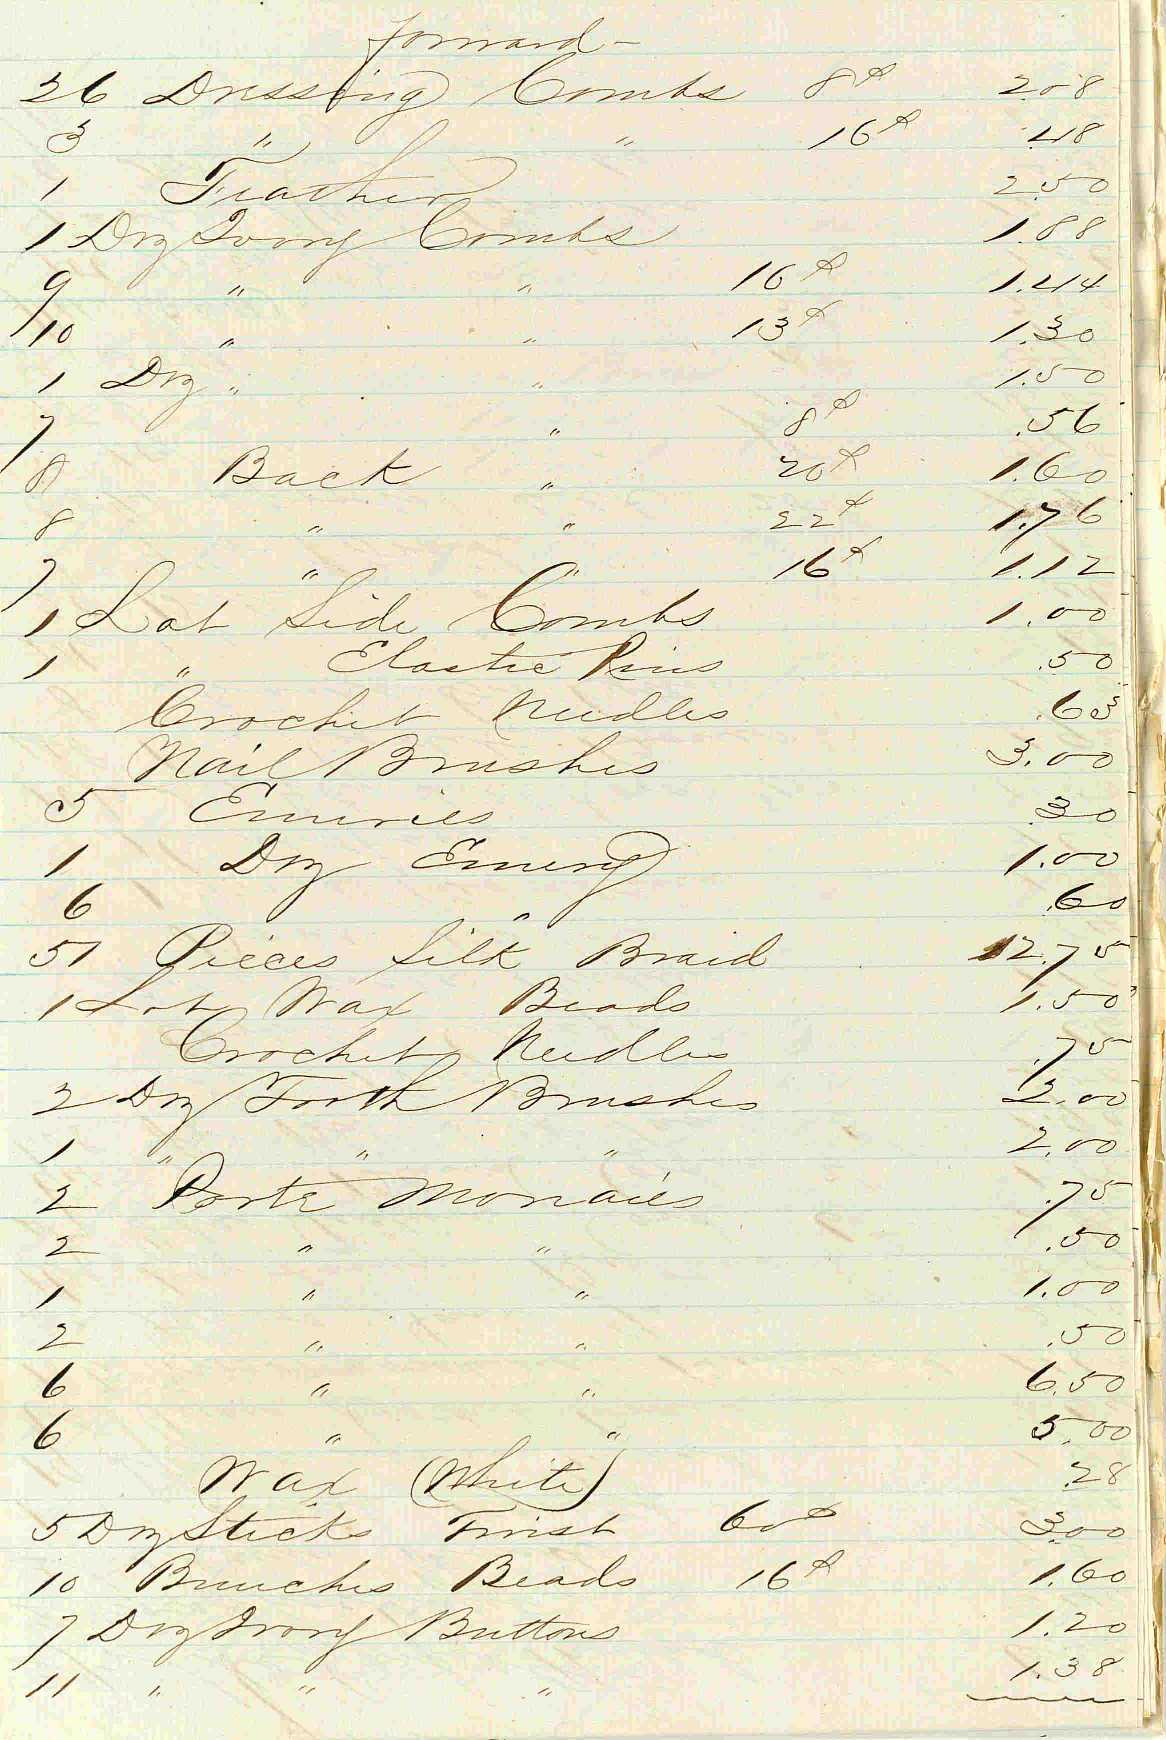 Forward -
26 Dressing Combs 8¢ 2.08
3 " " 16¢ .48
1 Feather 2.50
1 Doz Ivory Combs 1.88
9 " " 16¢ 1.44
10 " " 13¢ 1.30
1 Doz " " 1.50
7 " 8¢ .56
8 Back " 20¢ 1.60
8 " " 22¢ 1.76
7 " " 16¢ 1.12
1 Lot Side Combs 1.00
1 " Elastic Pins .50
Crochet Needles .63
Nail Brushes 3.00
5 Emeries .30
1 Doz Emery 1.00
6 " .60
51 Pieces Silk Braid 12.75
1 Lot Wax Beads 1.50
Crochet Needles .75
2 Doz Tooth Brushes 3.00
1 " " " 2.00
2 Porte Monaies .75
2 " " .50
1 " " 1.00
2 " " .50
6 " " 6.50
6 " " 5.00
Wax (White) .28
5 Doz Sticks Twist 60¢ 3.00
10 Bunches Beads 16¢ 1.60
7 Doz Ivory Buttons 1.20
11 " " " 1.38